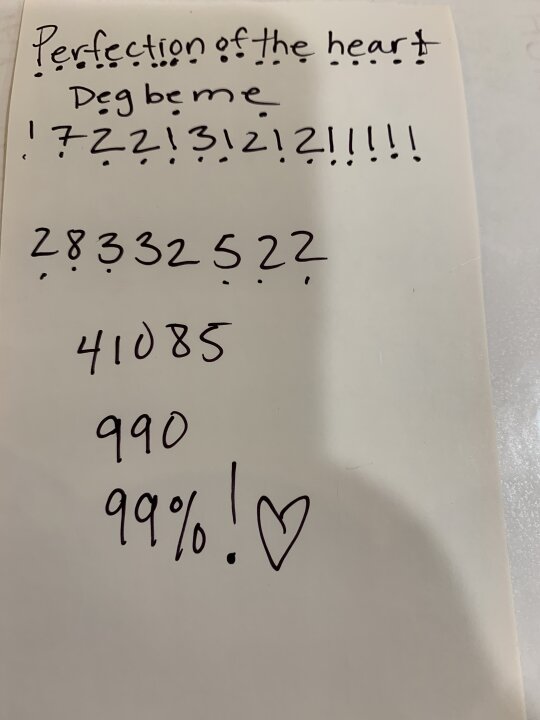 Perfection of the heart
Degbeme
17221312121111
28332522
41085
990
99%!♡